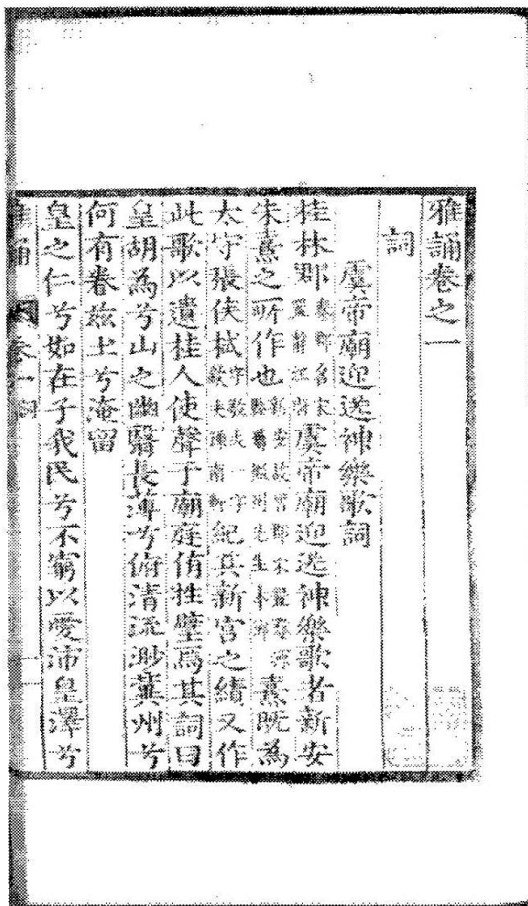 雅誦卷之一
詞
虞帝廟迎送神樂歌詞
桂林郡虞帝廟迎送神樂歌者新安
朱熹之所作也熹既為
太守張侯栻紀其新宮之績又作
此歌以遺桂人使聲于廟庭侑牲璧焉其詞曰
皇胡為兮山之幽翳長薄兮俯清流渺冀州兮
何有眷玆土兮淹留
皇之仁兮如在子我民兮不窮以愛沛皇澤兮